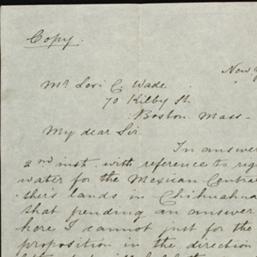 Copy.
New
Mr Levi C Wade
70 Kilby St.
Boston Mass-
My dear Sir
In answer
2nd inst. with reference to rig
water for the Mexican Centra
their lands in Chihuahua
that pending an answer
here I cannot just for the
proposition in the direction